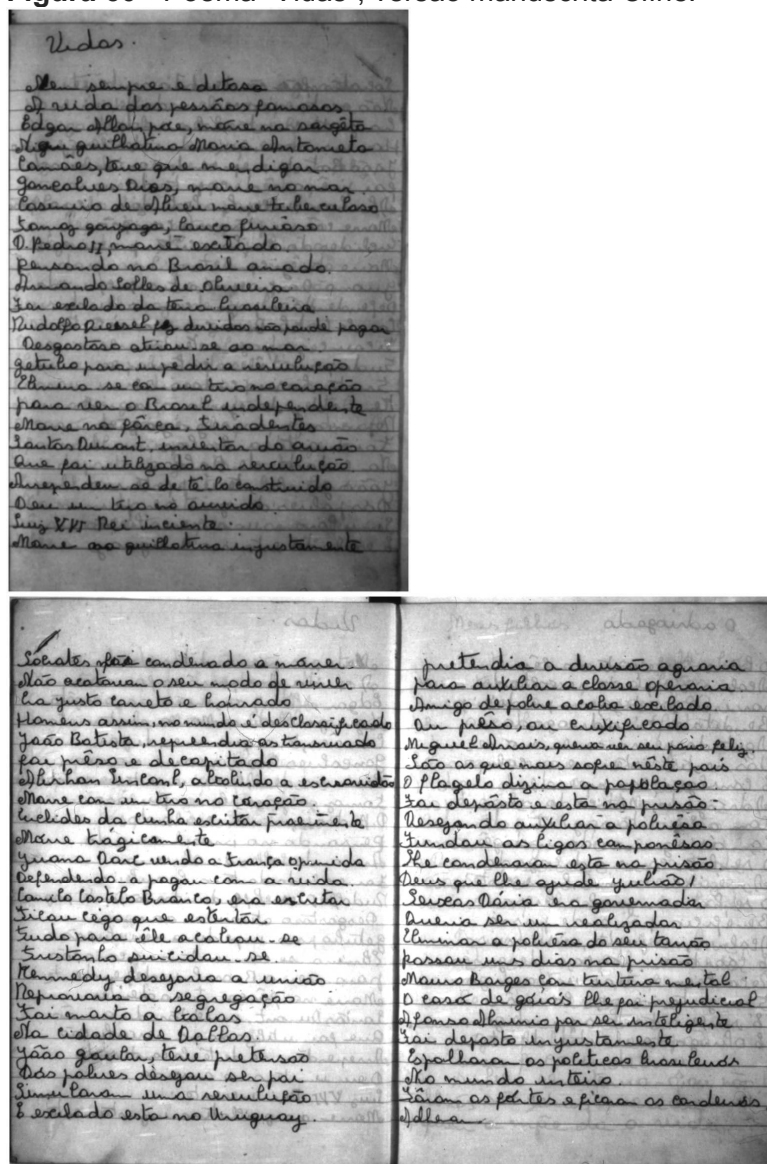 Figura 60 - Poema "Vidas", versão manuscrita
Vidas.
Nem sempre é ditosa
A vida das pessôas famosas
Edgar Allan poe, morre na sargêta
guilhotina Maria Antonieta
Camões, teve que mendigar
Gonçalves Dias, morre no mar
Casemiro de Abreu morre tuberculoso
Tomaz gonzaga, louco furioso
D. Pedro II, morre exilado
pensando no Brasil amado.
Armando Salles de Oliveira
Foi exilado da terra brasileira
Rudolfo Diessel fez dividas não poude pagar
Desgostoso atirou-se ao mar.
getulio para impedir a revulução
Elimina se com um tiro no coração
para ver o Brasil independente
Morre na fôrca, Tiradentes
Santos Dumont, inventor do avião
Que foi utilizado na revulução.
Arrependeu-se de tê-lo construido
Deu um tiro no ouvido.
Luiz XVI Rei inciente.
Morre na guilhotina injustamente
Sócrates foi condenado a morrer
Não acataram o seu modo de viver
Era justo correto e honrado
Homens assim, no mundo é desclassificado
João Batista, repreendia as transviado
foi prêso e decapitado
Abrhan Linconl, abolindo a escravidão
Morre com um tiro no coração.
Euclides da Cunha escritor
Morre trágicamente
Juana Darc vendo a França oprimida
Defendendo a pagou com a vida.
Camilo Castelo Branco, era escritor
Ficou cégo que
Tudo para êle acabou-se
Tristonho suicidou-se.
Kennedy desejava a união
Reprovava a segregação
Foi morto a balas
Na cidade de Dallas.
João goulart, teve pretensão
Dos pobres desejou ser pai
Simularam uma revulução
E exilado esta no Uruguay.
pretendia a divisão agraria
para auxiliar a classe operaria
Amigo de pobre acaba exilado
Ou prêso, ou cruxificado
Miguel Arrais, queria ver seu povo feliz
São os que mais sofre nêste país
O flagelo dizima a população
Foi deposto e esta na prisão-
Desejando auxiliar a pobrêsa
Fundou as ligas camponêsas
Lhe condenaram esta na prisão
Deus que lhe ajude Julião!
Seixas Dória era governador
Queria ser um realizador
Eliminar a pobrêsa do seu torrão
passou uns dias na prisão
Mauro Borges com tortura mental
O caso de goiás lhe foi prejudicial
Afonso Arinos por ser inteligente
Foi deposto injustamente
Espalharam os politicos brasileiros
No mundo inteiro.
Fôram os fortes e ficaram os cordeiros